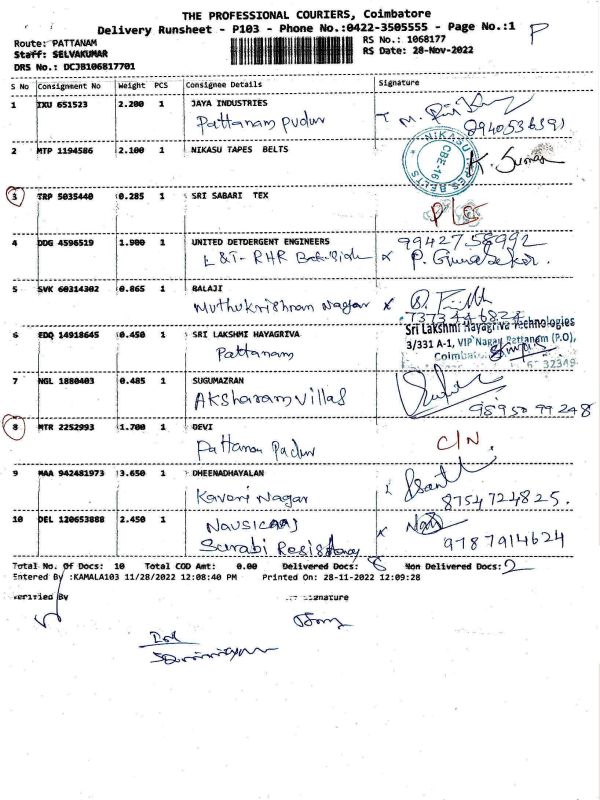 THE PROFESSIONAL COURIERS, Coimbatore
Delivery Runsheet - P103 - Phone No.:0422-3505555 - Page No.:1 P
Route: PATTANAM RS No.: 1068177
Staff: SELVAKUMAR RS Date: 28-Nov-2022
DRS No.: DCJB106817701
S No Consignment No Weight PCS Consignee Details Signature
1 IXU 651523 2.200 1 JAYA INDUSTRIES
Pattanam Pudur 8940536391
2 MTP 1194586 2.100 1 NIKASU TAPES BELTS K. Suman
NIKASU TAPES BELTS CBE-16
3 TRP 5035440 0.285 1 SRI SABARI TEX
4 DDG 4596519 1.900 1 UNITED DETDERGENT ENGINEERS 9942758992
L&T- RHR x P. Gunasekar.
5 SVK 60314302 0.865 1 BALAJI
Muthukrishnan Nagar x 7373446824
6 EDQ 14918645 0.450 1 SRI LAKSHMI HAYAGRIVA Sri Lakshmi Hayagriva Technologies
Pattanam 3/331 A-1, VIP Nagar, Pattanam (P.O),
7 NGL 1880403 0.485 1 SUGUMAZRAN
Aksharam Villas 9895099248
8 MTR 2252993 1.700 1 DEVI C/N
Pattanam Pudur
9 MAA 942481973 3.650 1 DHEENADHAYALAN
Kaveri Nagar 8754724825.
10 DEL 120653888 2.450 1 x
Surabi 9787914624
Total No. Of Docs: 10 Total COD Amt: 0.00 Delivered Docs: 8 Non Delivered Docs: 2
Entered By :KAMALA103 11/28/2022 12:08:40 PM Printed On: 28-11-2022 12:09:28
Verified By Signature